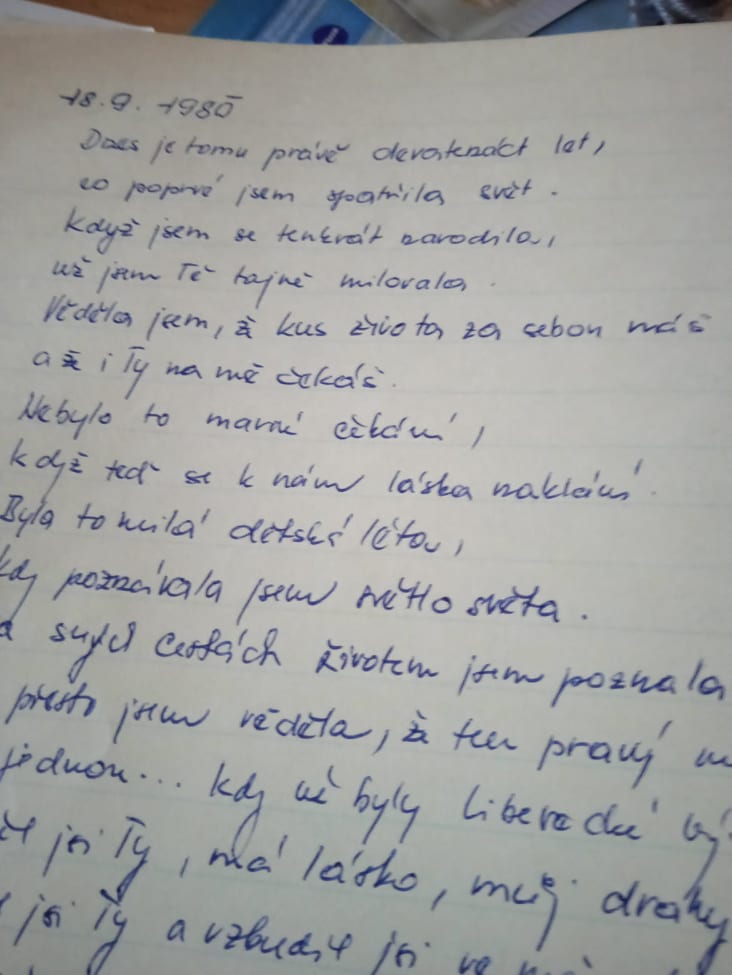 18.9. 1980
Dnes je tomu právě devatenáct let,
co poprvé jsem spatřila svět.
Když jsem se tenkrát narodila,
už jsem Tě tajně milovala.
Věděla jsem, že kus života za sebou máš
a že i Ty na mě čekáš.
Nebylo to marné čekání,
když teď se k nám láska naklání.
Byla to milá dětská léta,
kdy poznávala jsem světlo světa.
svých cestách životem jsem poznala
přesto jsem věděla, že ten pravý
jednou... kdy už byly liberecké
jsi Ty, má lásko, můj drahý
jsi Ty a vzbudil jsi ve